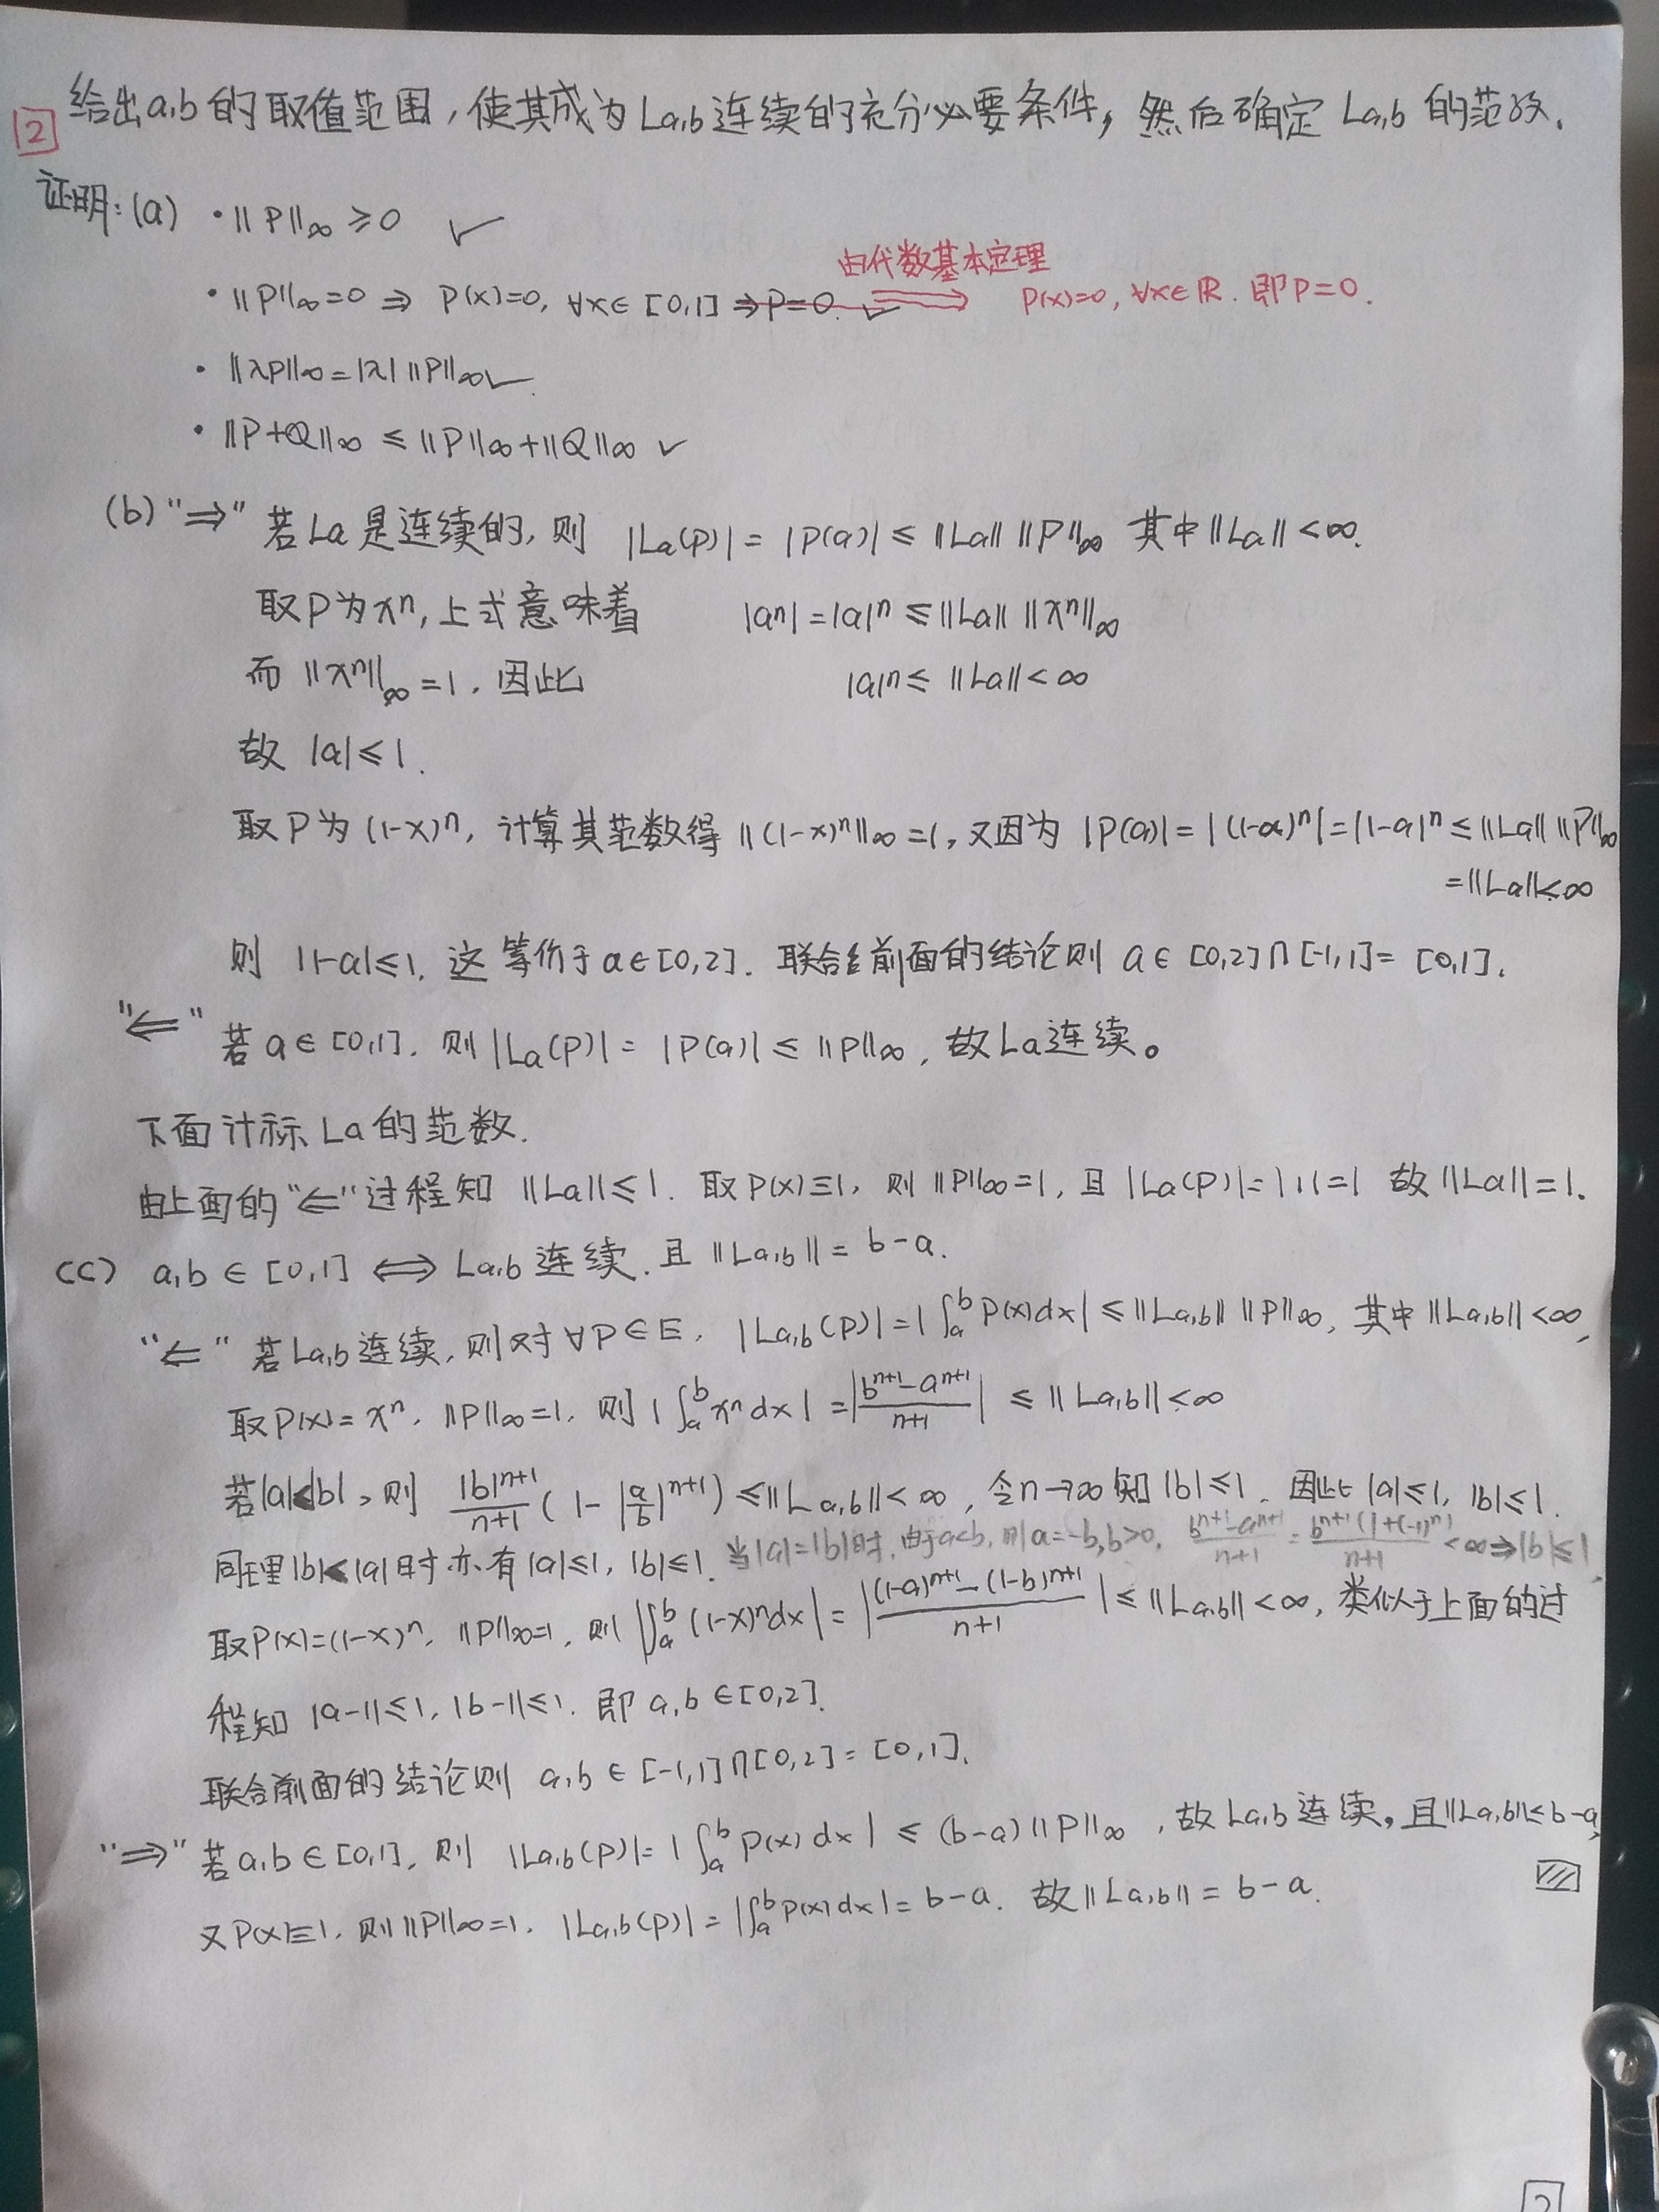 2 给出a,b的取值范围,使其成为La,b连续的充分必要条件,然后确定La,b的范数.
证明:(a) ·‖P‖∞≥0 ✓
由代数基本定理
·‖P‖∞=0 ⇒ P(x)=0, ∀x∈[0,1] ⇒P=0. ✓ ⟹ P(x)=0, ∀x∈ℝ. 即P=0.
·‖λP‖∞=|λ|‖P‖∞✓
·‖P+Q‖∞ ≤‖P‖∞+‖Q‖∞ ✓
(b)"⇒" 若La是连续的,则 |La(P)|=|P(a)|≤‖La‖‖P‖∞ 其中‖La‖<∞.
取P为xⁿ,上式意味着 |aⁿ|=|a|ⁿ≤‖La‖‖xⁿ‖∞
而‖xⁿ‖∞=1,因此 |a|ⁿ≤‖La‖<∞
故 |a|≤1.
取P为(1-x)ⁿ,计算其范数得‖(1-x)ⁿ‖∞=1,又因为|P(a)|=|(1-a)ⁿ|=|1-a|ⁿ≤‖La‖‖P‖∞
=‖La‖<∞
则 |1-a|≤1. 这等价于a∈[0,2]. 联合前面的结论则 a∈[0,2]∩[-1,1]=[0,1].
"⇐" 若a∈[0,1]. 则|La(P)|=|P(a)|≤‖P‖∞,故La连续。
下面计标La的范数.
由上面的"⇐"过程知 ‖La‖≤1. 取P(x)≡1,则‖P‖∞=1,且|La(P)|=|1|=1 故‖La‖=1.
(c) a,b∈[0,1] ⟺ La,b连续.且‖La,b‖=b-a.
"⇐" 若La,b连续,则对∀P∈E, |La,b(P)|=|∫ₐᵇP(x)dx|≤‖La,b‖‖P‖∞,其中‖La,b‖<∞,
取P(x)=xⁿ,‖P‖∞=1,则|∫ₐᵇxⁿdx|=|(bⁿ⁺¹-aⁿ⁺¹)/(n+1)|≤‖La,b‖<∞
若|a|<|b|,则 |b|ⁿ⁺¹/(n+1) (1-|a/b|ⁿ⁺¹)≤‖La,b‖<∞,令n→∞知|b|≤1. 因此|a|≤1,|b|≤1.
同理|b|<|a|时亦有|a|≤1,|b|≤1. 当|a|=|b|时,由于a<b,则a=-b,b>0, (bⁿ⁺¹-aⁿ⁺¹)/(n+1)=bⁿ⁺¹(1+(-1)ⁿ)/(n+1)<∞⇒|b|≤1
取P(x)=(1-x)ⁿ,‖P‖∞=1,则|∫ₐᵇ(1-x)ⁿdx|=|((1-a)ⁿ⁺¹-(1-b)ⁿ⁺¹)/(n+1)|≤‖La,b‖<∞,类似于上面的过
程知 |a-1|≤1,|b-1|≤1. 即a,b∈[0,2].
联合前面的结论则 a,b∈[-1,1]∩[0,2]=[0,1].
"⇒" 若a,b∈[0,1],则 |La,b(P)|=|∫ₐᵇP(x)dx|≤(b-a)‖P‖∞,故La,b连续,且‖La,b‖≤b-a,
又P(x)≡1,则‖P‖∞=1. |La,b(P)|=|∫ₐᵇP(x)dx|=b-a. 故‖La,b‖=b-a.